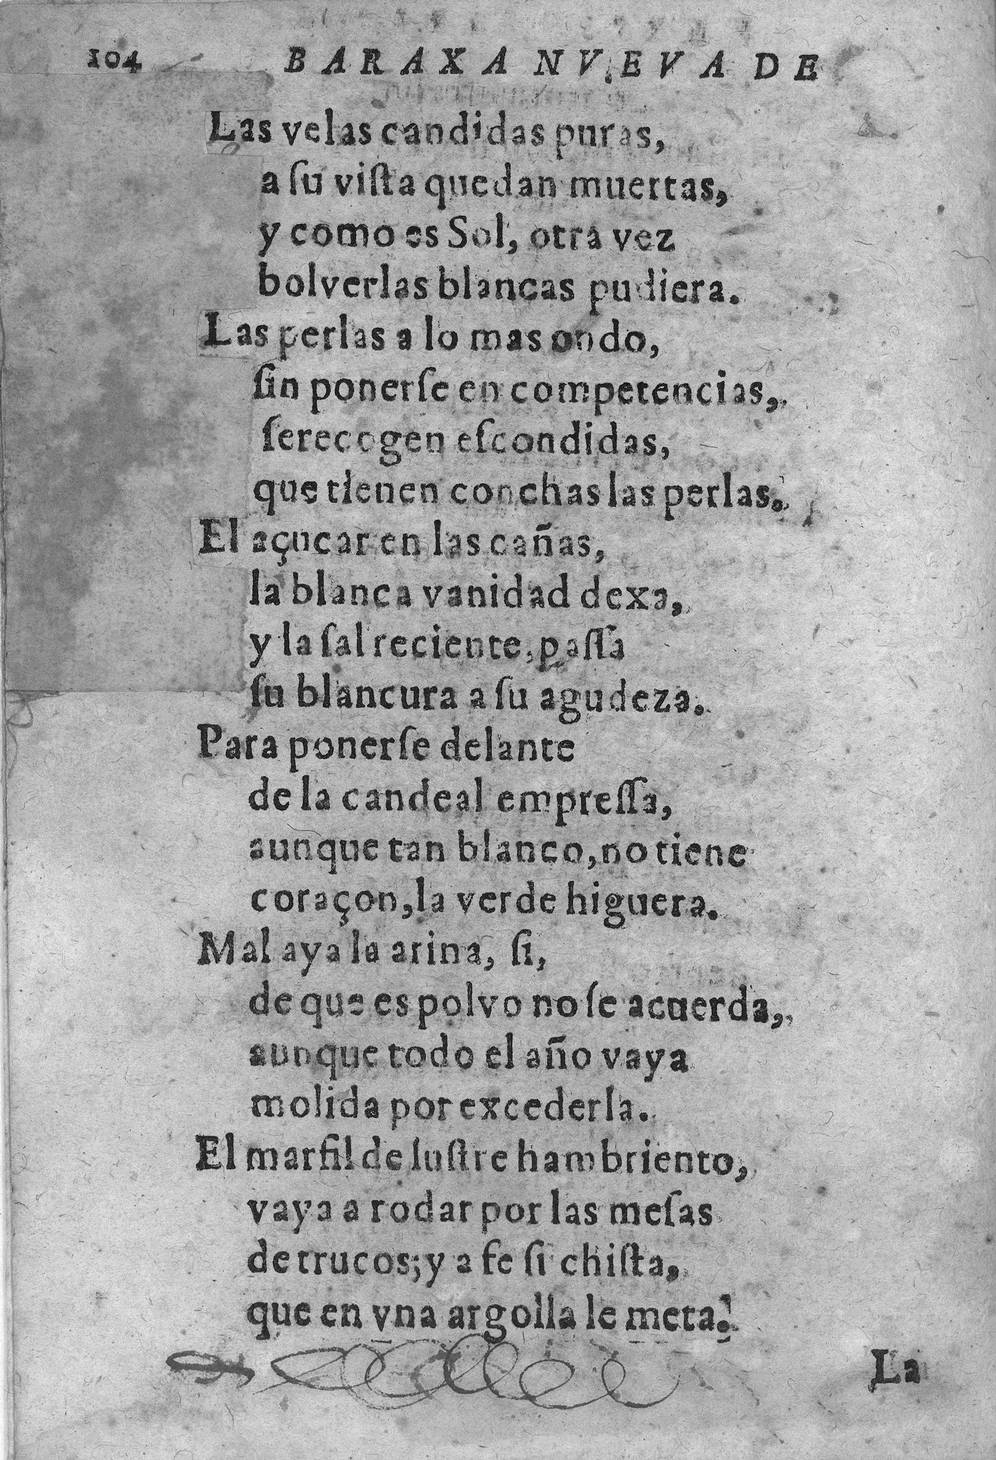 104 BARAXA NVEVA DE
Las velas candidas puras,
a ſu viſta quedan muertas,
y como es Sol, otra vez
bolverlas blancas pudiera.
Las perlas a lo mas ondo,
ſin ponerſe en competencias,
ſerecogen eſcondidas,
que tienen conchas las perlas.
El açucar en las cañas,
la blanca vanidad dexa,
y la ſal reciente, paſſa
ſu blancura a ſu agudeza.
Para ponerſe delante
de la candeal empreſſa,
aunque tan blanco, no tiene
coraçon, la verde higuera.
Mal aya la arina, ſi,
de que es polvo no ſe acuerda,
aunque todo el año vaya
molida por excederla.
El marfil de luſtre hambriento,
vaya a rodar por las meſas
de trucos; y a fe ſi chiſta,
que en vna argolla le meta.
La